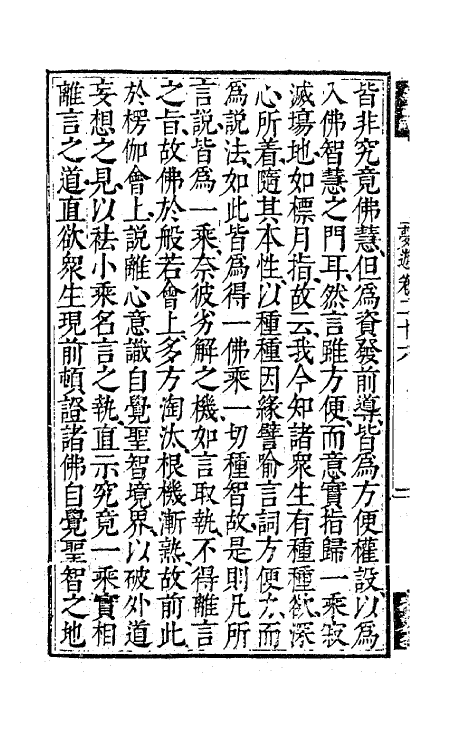 皆非究竟佛慧、但爲資發前導、皆爲方便權設、以爲
入佛智慧之門耳、然言雖方便、而意實指歸一乘寂
滅塲地、如標月指、故云、我今知諸衆生有種種欲、深
心所着、隨其本性、以種種因緣譬喻言詞方便力而
爲說法、如此皆爲得一佛乘一切種智故、是則凡所
言說、皆爲一乘、奈彼劣解之機、如言取執、不得離言
之旨、故佛於般若會上、多方淘汰、根機漸熟、故前此
於楞伽會上、說離心意識自覺聖智境界、以破外道
妄想之見、以袪小乘名言之執、直示究竟一乘實相
離言之道、直欲衆生現前頓證諸佛自覺聖智之地
夢遊卷二十六